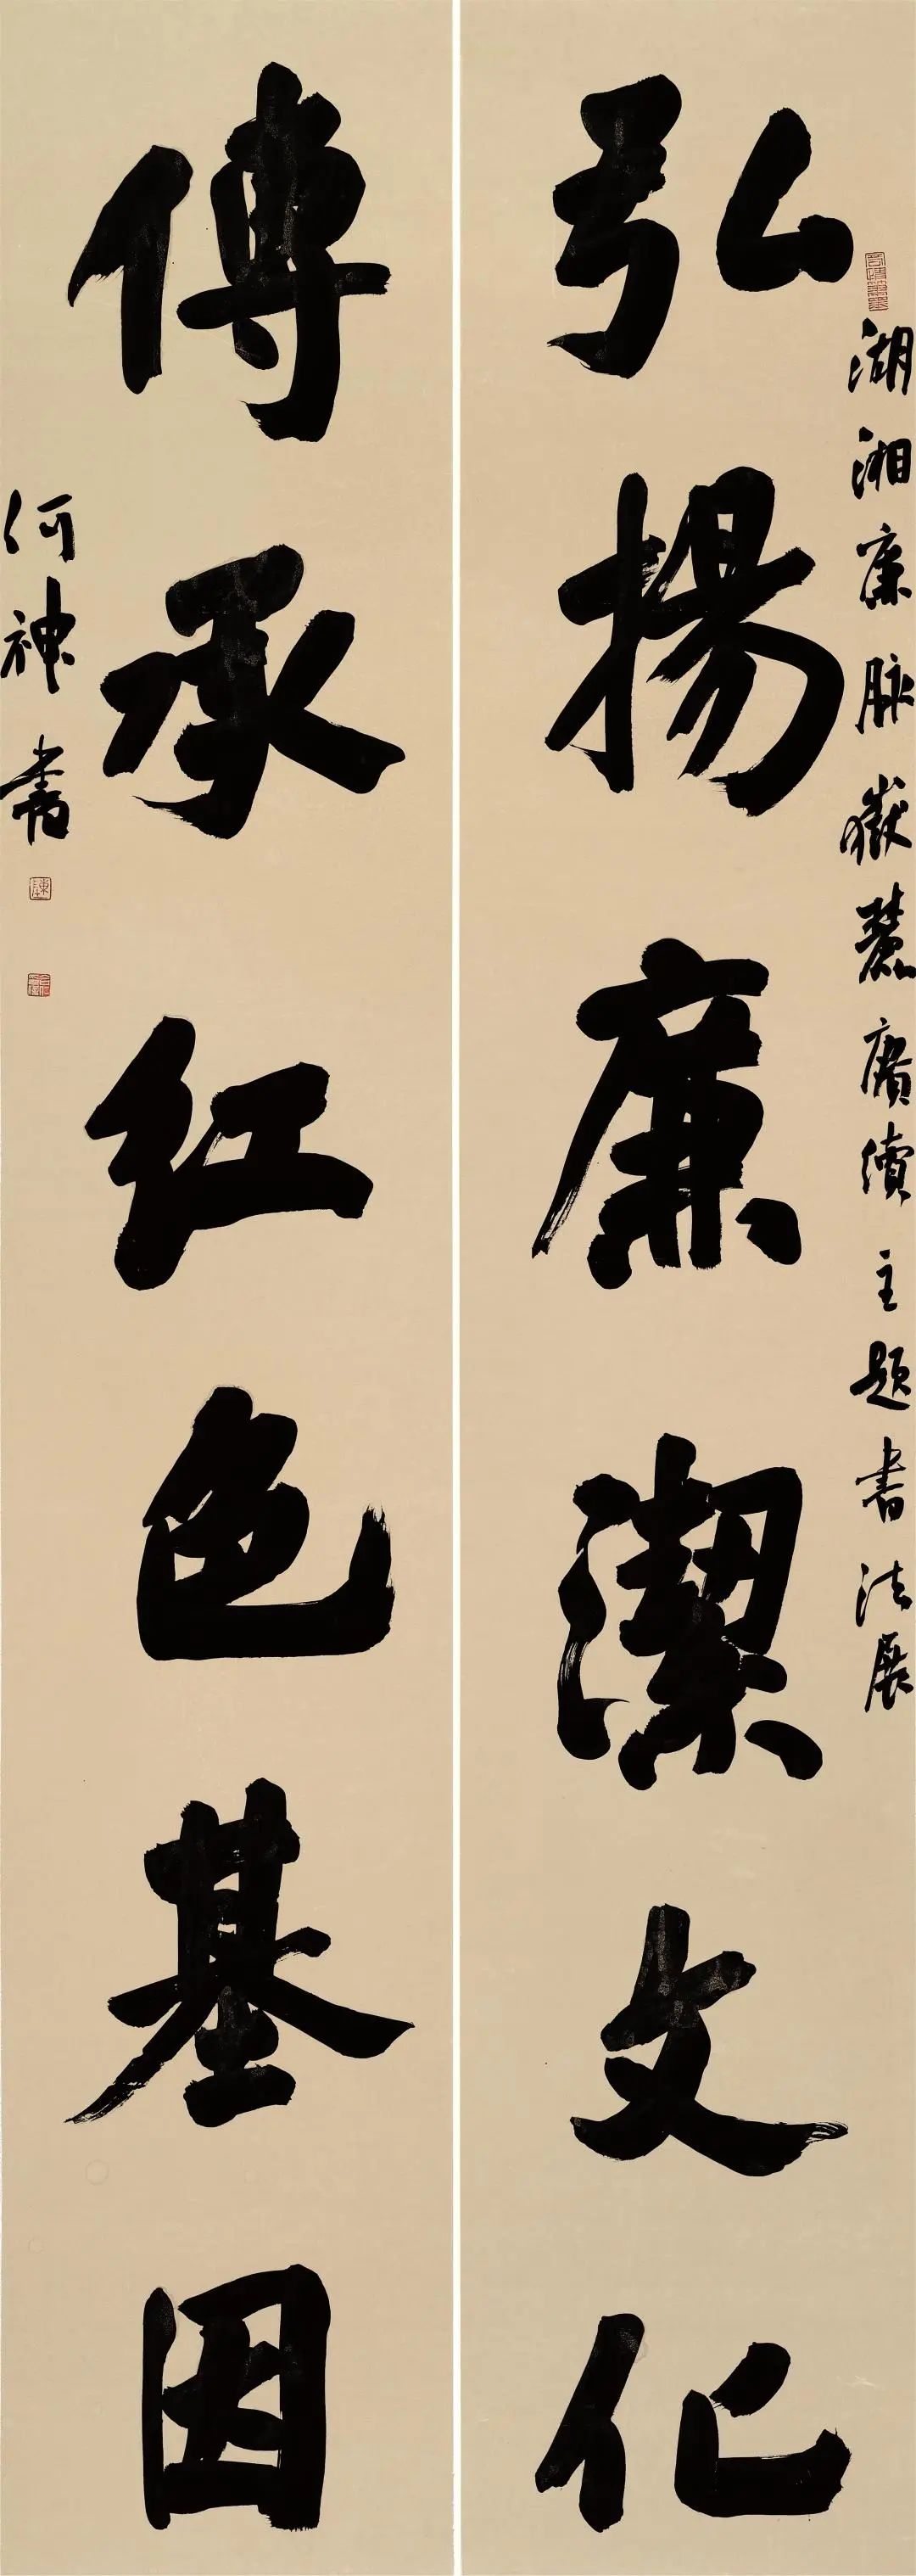 弘揚廉潔文化
湖湘廉脉嶽麓廣續主題書法展
傳承紅色基因
何神書